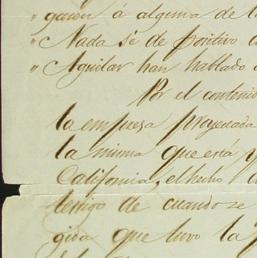 garon á alguna de l
" Nada sé de positivo a
" Aguilar han hablado
Por el contenid
la empresa proyectada
la misma que está y
California, el hecho d
testigo de cuando se
gira que tuvo la